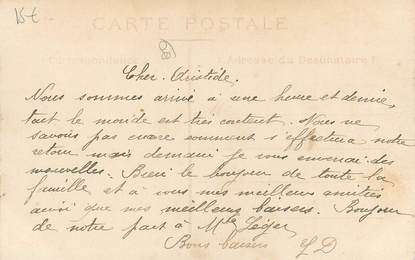 15€
CARTE POSTALE
68
Correspondance
Adresse du Destinataire
Cher Aristide.
Nous sommes arrivé à une heure et demie,
tout le monde est très content. Nous ne
savons pas encore comment s'effectuera notre
retour mais demain je vous enverrai des
nouvelles. Bien le bonjour de toute la
famille et à vous mes meilleurs amitiés
ainsi que mes meilleurs baisers. Bonjour
de notre part à Mlle Léger
Bons baisers LD